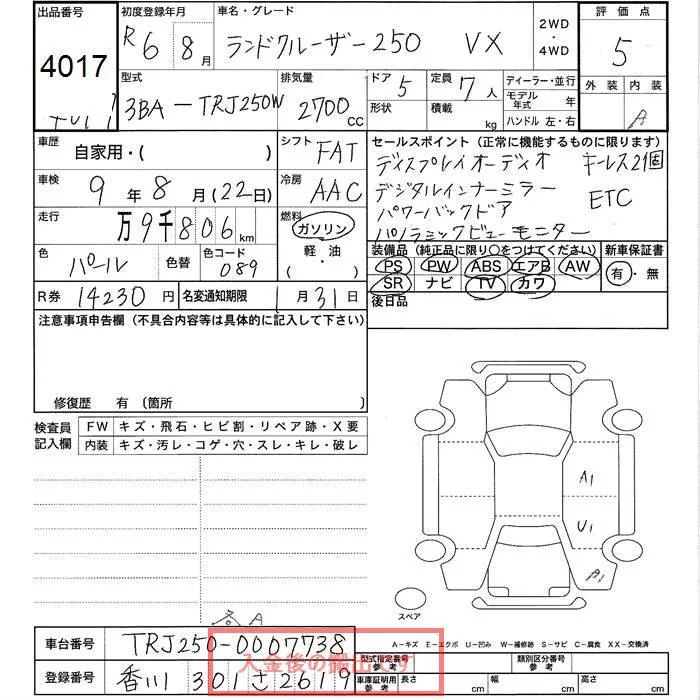 出品番号 初度登録年月 車名・グレード 2WD・4WD 評価点
4017 R6 8月 ランドクルーザー250 VX 5
型式 排気量 ドア 定員 ディーラー・並行 外装 内装
3BA-TRJ250W 2700CC 5 7人 モデル年式 年
形状 積載 kg ハンドル 左・右 A
車歴 自家用・( ) シフト FAT セールスポイント (正常に機能するものに限ります)
ディスプレイオーディオ キーレス2個
車検 9年8月(22日) 冷房 AAC デジタルインナーミラー ETC
パワーバックドア
走行 万9千806km 燃料 ガソリン・軽・油 (・) パノラミックビューモニター
色 パール 色替 色コード 089 装備品 (純正品に限り○をつけてください) 新車保証書
PS PW ABS エアB AW 有・無
SR ナビ TV カワ
R券 14230円 名変通知期限 1月31日 後日品
注意事項申告欄 (不具合内容等は具体的に記入して下さい)
修復歴 有 (箇所
検査員記入欄 FW キズ・飛石・ヒビ割・リペア跡・X要
内装 キズ・汚レ・コゲ・穴・スレ・キレ・破レ
A1
U1
A1
スペア
A
A-キズ E-エクボ U-凹み W-補修跡 S-サビ C-腐食 XX-交換済
車台番号 TRJ250-0007738 型式指定番号 参考 類別区分番号 参考
入金後の搬出です
登録番号 香川 301 さ 2619 車庫証明用 参考 長さ cm 幅 cm 高さ cm